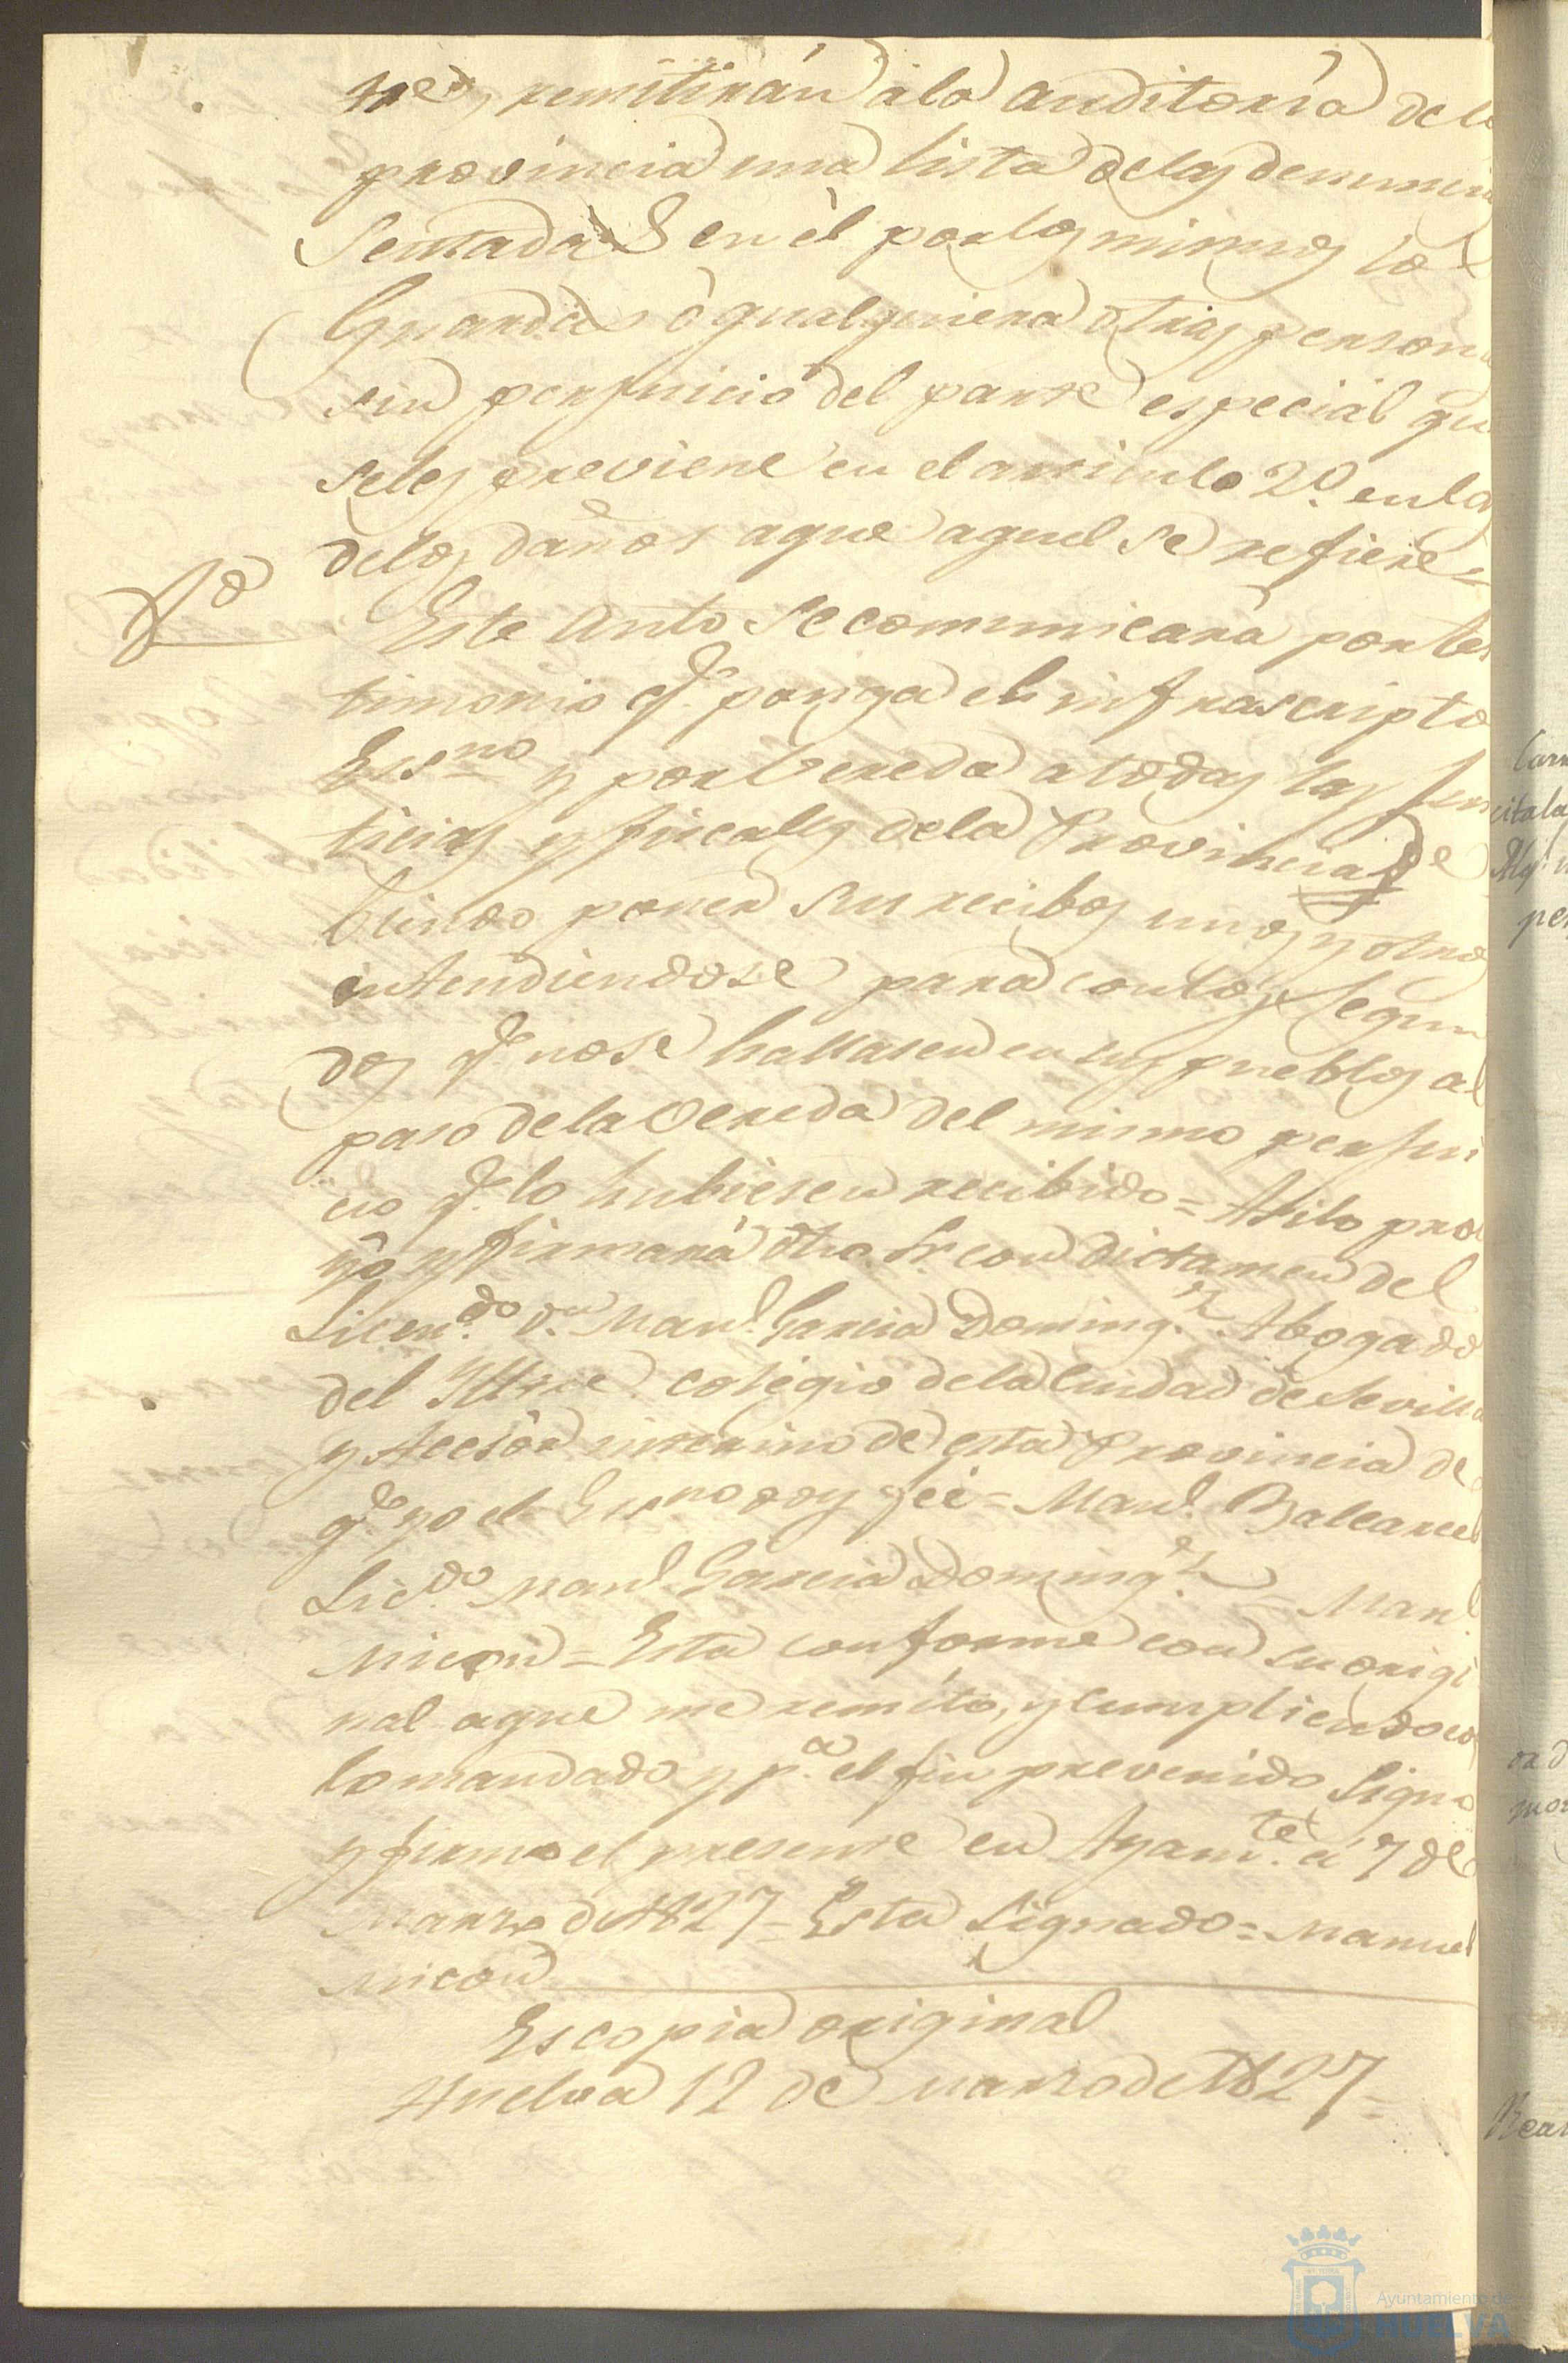 remitirán à la auditoría de la
provincia una lista de las denuncia
sentadas en èl por los mismos lo
Guardas ò qualquiera otras person
sin perjuicio del parte especial qu
se les previene en el articulo 2º. en la
de los daños aque aquel se refiere=
Este Auto se comunicará por tes
timonio qe. ponga el infrascripto
Essno y por Vereda a todas las Jus
ticias y fiscales de la Provincia De
biendo poner su recibos unos y otros
entendiendose para con los segun
dos qe. no se hallasen en sus pueblos al
paso de la Vereda del mismo perjui
cio qe. lo hubiesen recibido = Asi lo pro
vyó y firmará dho. Sr. con dictamen del
Licendo. dn. Manl. Garcia Domingz. Abogado
del Iltre. colegio de la Ciudad de Sevilla
y Acesòr interino de esta Provincia de
qe. yo el Essno doy feé = Manl. Balcarcel
Licdo. Manl. Garcia Domingz. = Manl.
Micon = Esta conforme con su origi
nal aque me remito, y cumpliendo co
lo mandado y pa. el fin prevenido Signo
y firmo el presente en Ayamte. a 7 de
Marzo de 1827 = Esta Signado = Manuel
Micon
Es copia original
Huelva 12 de Marzo de 1827=
Ayuntamiento de
HUELVA